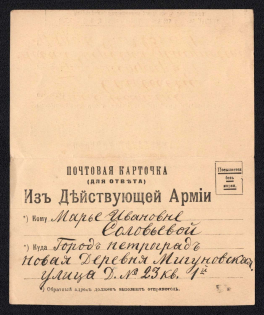 ПОЧТОВАЯ КАРТОЧКА
(ДЛЯ ОТВѢТА)
Изъ Дѣйствующей Арміи
Пересылается
безъ
марки.
*) Кому Марье Ивановне
Соловьевой
*) Куда Городъ петроградъ
новая Деревня Мигуновская
улица Д. № 23 кв. 1й
*) Обратный адресъ долженъ заполнить отправитель.